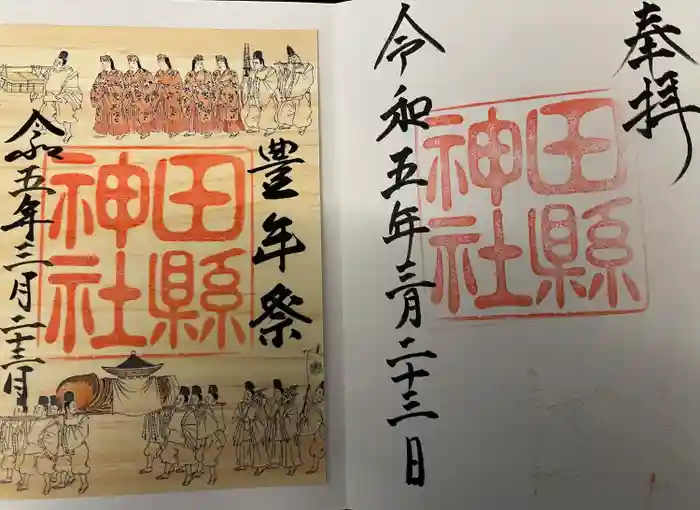 奉拝
田縣
神社
令和五年三月二十三日
豊年祭
田縣
神社
令和五年三月二十三日